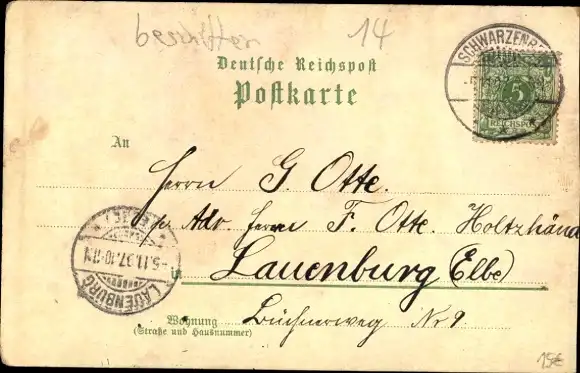 beschnitten 14
Deutsche Reichspost
Postkarte
SCHWARZENBE
5
REICHSPOST
An
Herrn G. Otte.
p. Adr. Herrn F. Otte. Holtzhänd
LAUENBURG
5.11.97.10-11V
in Lauenburg (Elbe)
Wohnung
(Straße und Hausnummer)
Büchnerweg Nr 9
15€